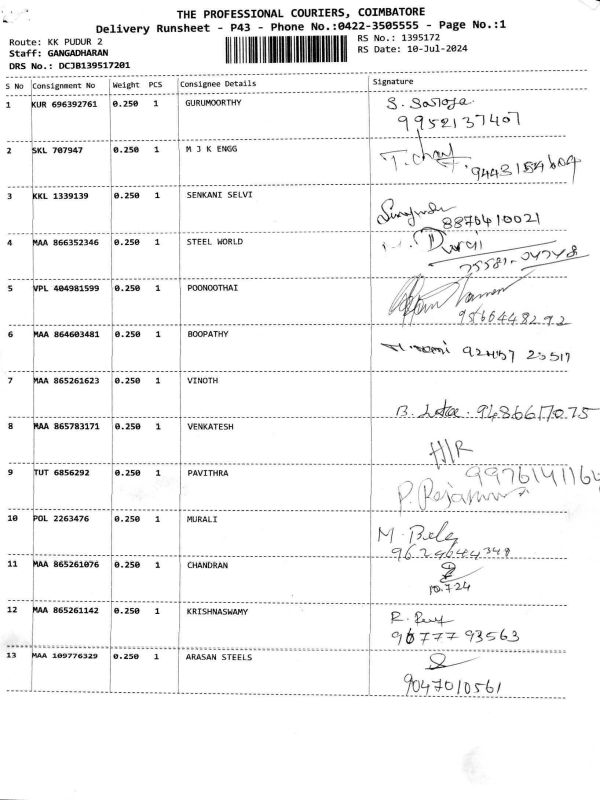 THE PROFESSIONAL COURIERS, COIMBATORE
Delivery Runsheet - P43 - Phone No.:0422-3505555 - Page No.:1
Route: KK PUDUR 2
RS No.: 1395172
Staff: GANGADHARAN
RS Date: 10-Jul-2024
DRS No.: DCJB139517201
S No Consignment No Weight PCS Consignee Details Signature
1 KUR 696392761 0.250 1 GURUMOORTHY S. Saroja
9952137407
2 SKL 707947 0.250 1 M J K ENGG
3 KKL 1339139 0.250 1 SENKANI SELVI
8870410021
4 MAA 866352346 0.250 1 STEEL WORLD Durai
75581-04748
5 VPL 404981599 0.250 1 POONOOTHAI
9566448292
6 MAA 864603481 0.250 1 BOOPATHY
7 MAA 865261623 0.250 1 VINOTH
B. 9486617075
8 MAA 865783171 0.250 1 VENKATESH
H/R
9 TUT 6856292 0.250 1 PAVITHRA 9976141164
P.
10 POL 2263476 0.250 1 MURALI
M. Bela
9629644348
11 MAA 865261076 0.250 1 CHANDRAN
10.7.24
12 MAA 865261142 0.250 1 KRISHNASWAMY R.
96777 93563
13 MAA 109776329 0.250 1 ARASAN STEELS
9047010561